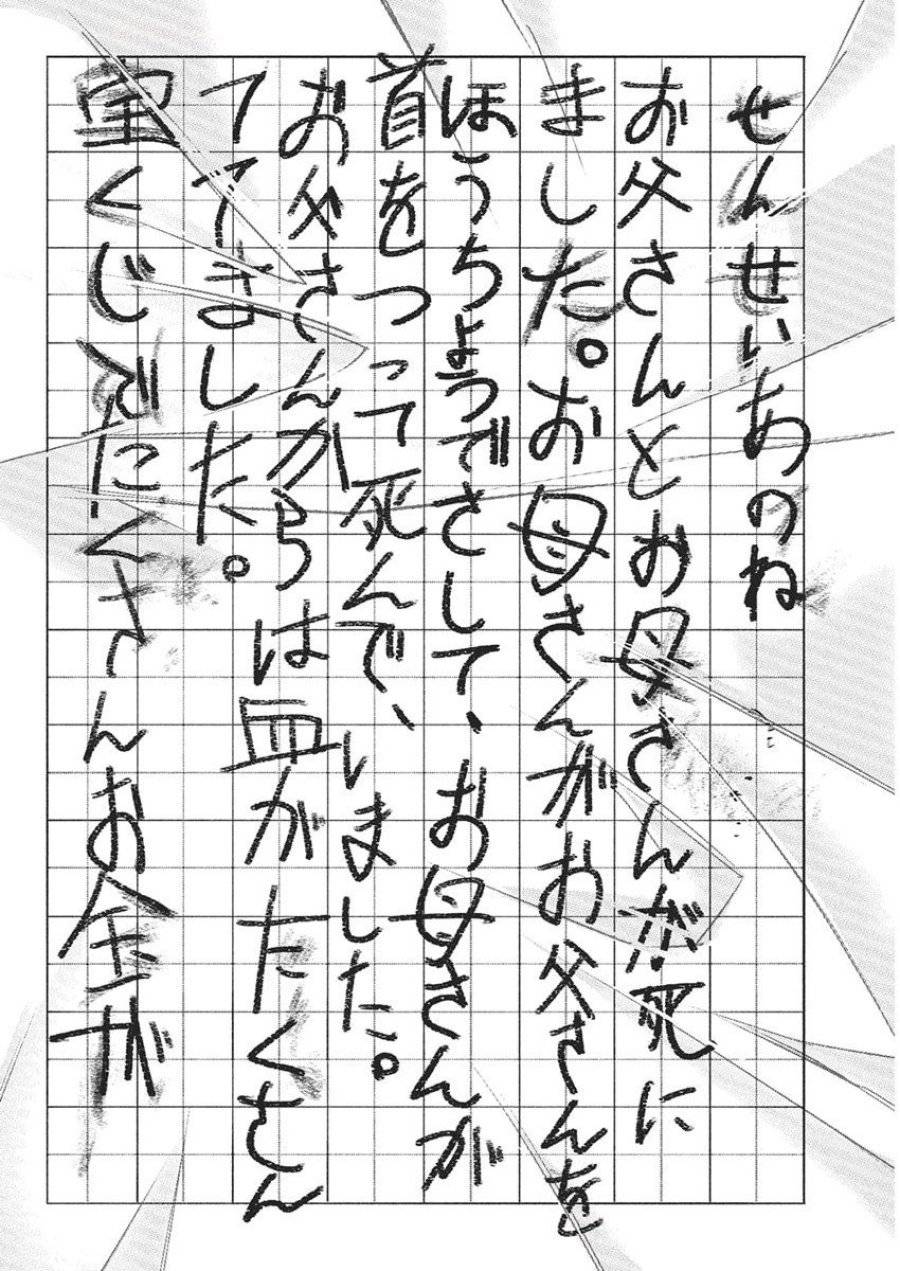 せんせいあのね
お父さんとお母さんが死に
ました。お母さんがお父さんを
ほうちょうでさして、お母さんが
首をつって死んで、いました。
お父さんからは皿がたくさん
ててきました。
宝くじたくさんお金が